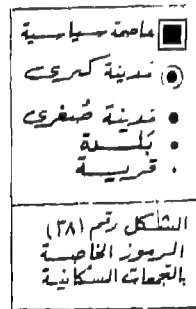 عاصمة سياسية
مدينة كبرى
مدينة صُغرى
بَلدة
قرية
الشكل رقم (٣٨)
الرموز الخاصة
بالتجمعات السكانية